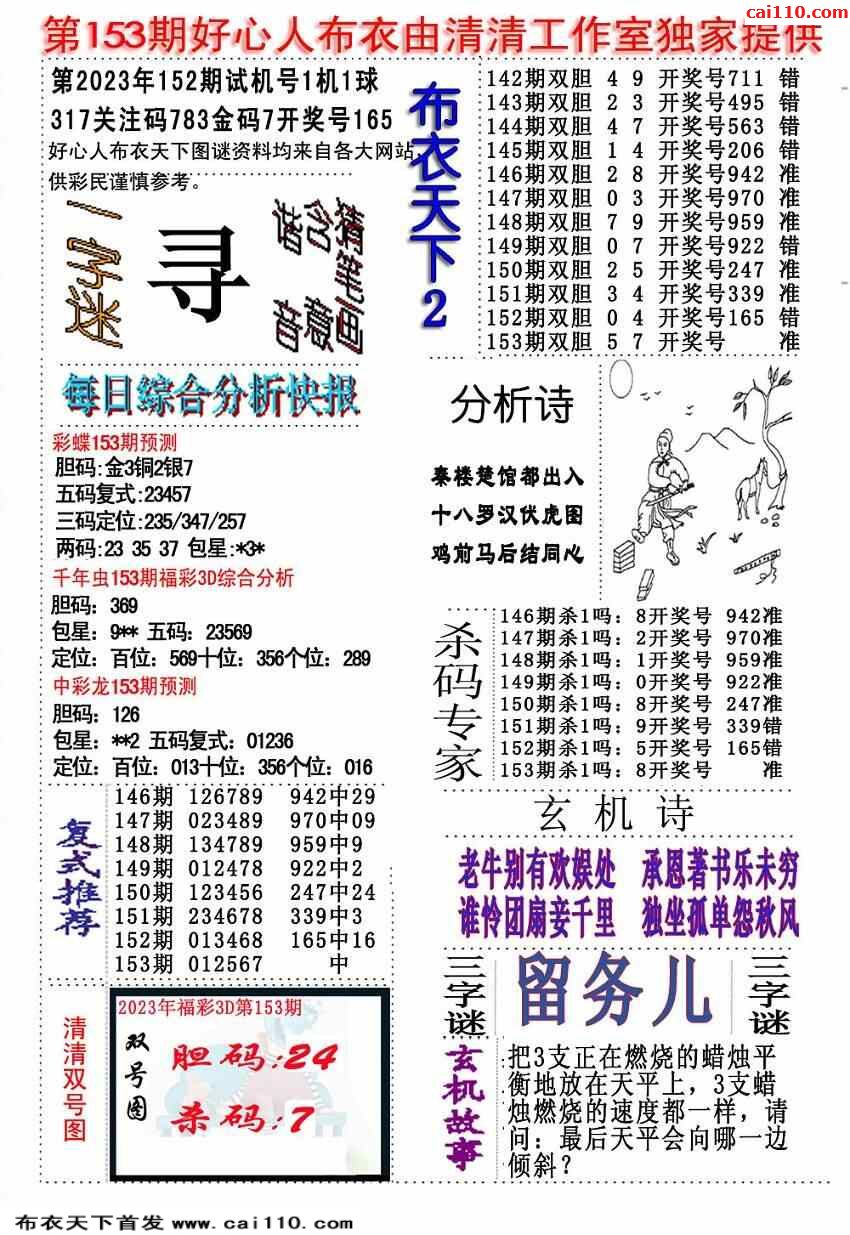 cai110.com
第153期好心人布衣由清清工作室独家提供
第2023年152期试机号1机1球
317关注码783金码7开奖号165
好心人布衣天下图谜资料均来自各大网站，
供彩民谨慎参考。
一字迷
寻
猜笔画
含意
谐音
布衣天下2
142期双胆 4 9 开奖号711 错
143期双胆 2 3 开奖号495 错
144期双胆 4 7 开奖号563 错
145期双胆 1 4 开奖号206 错
146期双胆 2 8 开奖号942 准
147期双胆 0 3 开奖号970 准
148期双胆 7 9 开奖号959 准
149期双胆 0 7 开奖号922 错
150期双胆 2 5 开奖号247 准
151期双胆 3 4 开奖号339 准
152期双胆 0 4 开奖号165 错
153期双胆 5 7 开奖号 准
每日综合分析快报
彩蝶153期预测
胆码:金3铜2银7
五码复式:23457
三码定位:235/347/257
两码:23 35 37 包星:*3*
千年虫153期福彩3D综合分析
胆码：369
包星：9** 五码：23569
定位：百位：569十位：356个位：289
中彩龙153期预测
胆码：126
包星：**2 五码复式：01236
定位：百位：013十位：356个位：016
分析诗
秦楼楚馆都出入
十八罗汉伏虎图
鸡前马后结同心
杀码专家
146期杀1吗：8开奖号 942准
147期杀1吗：2开奖号 970准
148期杀1吗：1开奖号 959准
149期杀1吗：0开奖号 922准
150期杀1吗：8开奖号 247准
151期杀1吗：9开奖号 339错
152期杀1吗：5开奖号 165错
153期杀1吗：8开奖号 准
复式推荐
146期 126789 942中29
147期 023489 970中09
148期 134789 959中9
149期 012478 922中2
150期 123456 247中24
151期 234678 339中3
152期 013468 165中16
153期 012567 中
玄机诗
老牛别有欢娱处 承恩著书乐未穷
谁怜团扇妾千里 独坐孤单怨秋风
三字谜
留务儿
三字谜
清清双号图
2023年福彩3D第153期
双号图
胆码:24
杀码:7
玄机故事
把3支正在燃烧的蜡烛平
衡地放在天平上，3支蜡
烛燃烧的速度都一样，请
问：最后天平会向哪一边
倾斜？
布衣天下首发 www.cai110.com